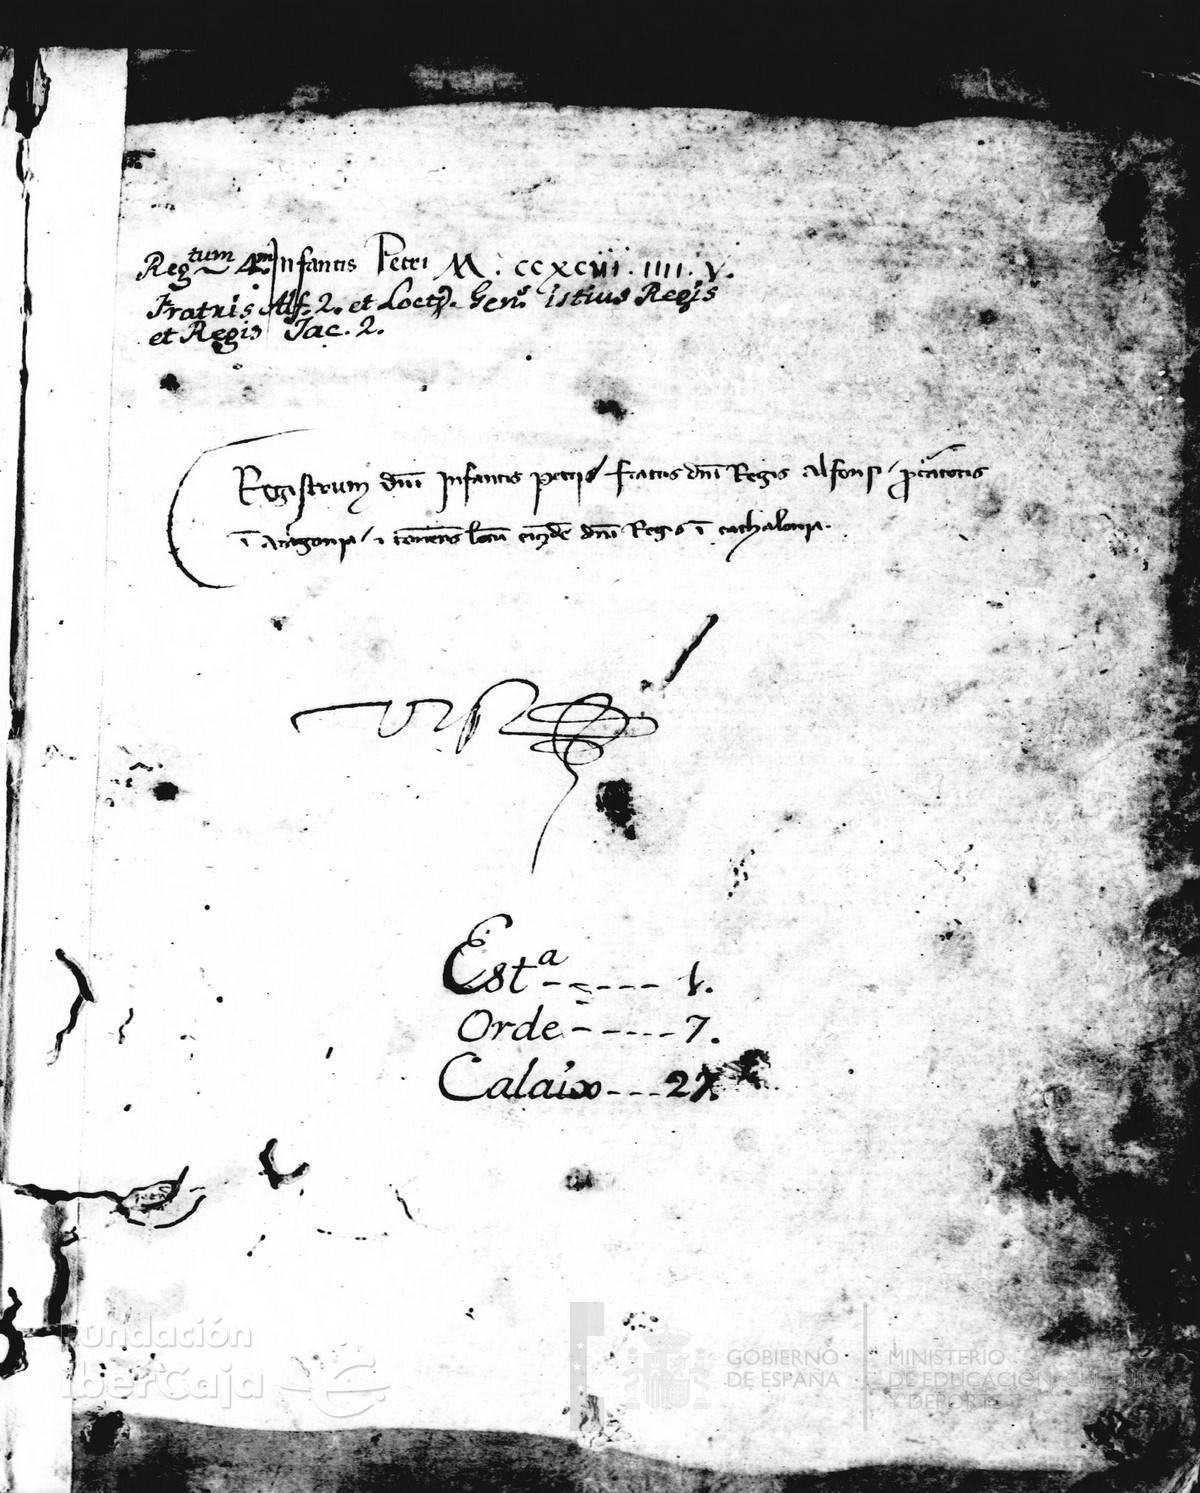 Reg^tum 4^m Infantis Petri M. ccxciii. iiii. v.
Fratris Alf. 2. et Loct. Gen. istius Regis
et Regis Jac. 2.
Registrum dñi Infantis petri fratris dñi Regis Alfonsi
ĩ Aragonia / locũ dñi Regis ĩ cathalonia.
Est^a ------ 1.
Orde ----- 7.
Calaix --- 27.
Fundación
iberCaja
GOBIERNO
DE ESPAÑA
MINISTERIO
DE EDUCACIÓN, CULTURA
Y DEPORTE